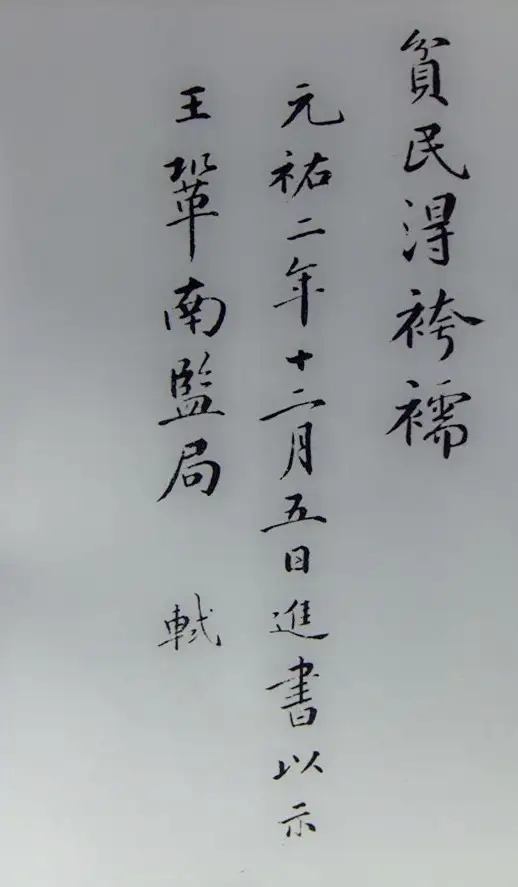 貧民得袴襦
元祐二年十二月五日進書以示
王鞏南監局 軾